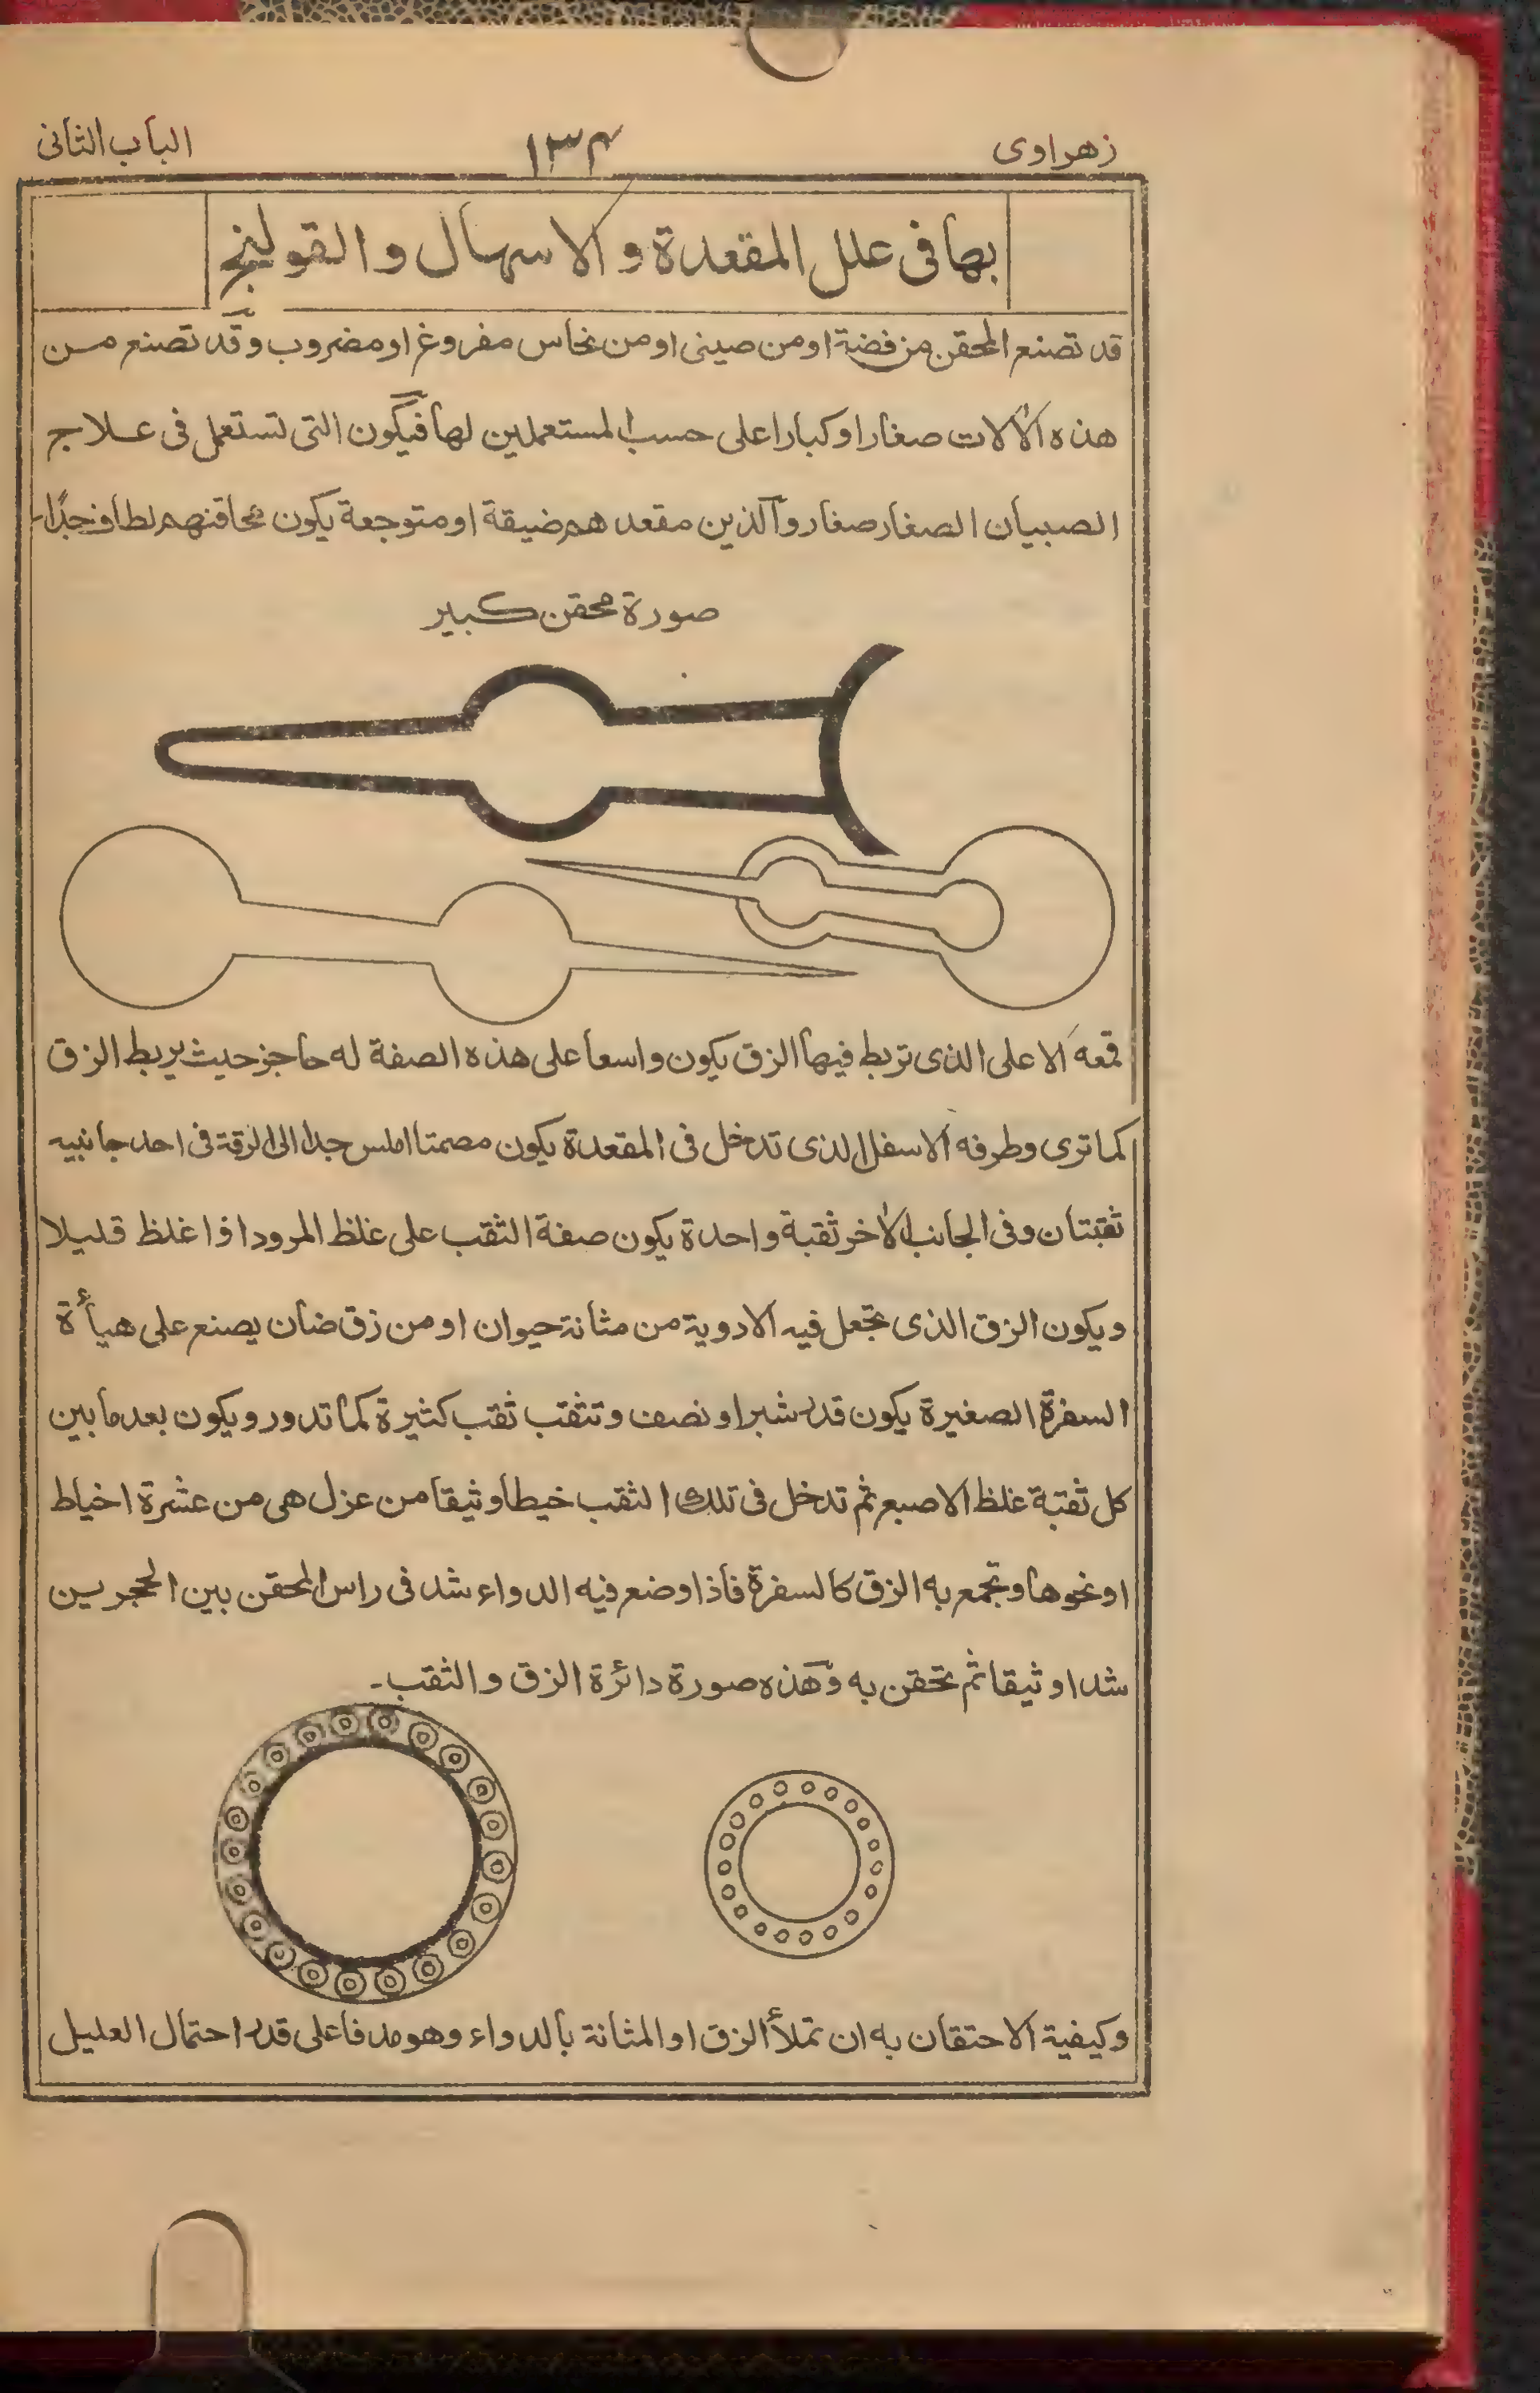 زهراوی
١٣٤
الباب الثانی
بها فی علل المقعدة و الاسهال و القولنج
قد تصنع المحقن من فضة او من صینی او من نحاس مفروغ او مضروب و قد تصنع من
هذه الآلات صغارا و کبارا علی حسب المستعملین لها فیکون التی تستعمل فی علاج
الصبیان الصغار صغار و الذین مقعدهم ضیقة او متوجعة یکون محاقنهم لطاف جدًا-
صورة محقن کبیر
قمعه الاعلی الذی تربط فیها الزق یکون واسعا علی هذه الصفة له حاجز حیث یربط الزق
کما تری و طرفه الاسفل الذی تدخل فی المقعدة یکون مصمتا املس جدا الی الرقة فی احد جانبیه
ثقبتان و فی الجانب الاخر ثقبة واحدة یکون صفة الثقب علی غلظ المرود افا غلظ قلیلا
و یکون الزق الذی تجعل فیه الادویة من مثانة حیوان او من زق ضان یصنع علی هیأة
السفرة الصغیرة یکون قدر شبر او نصف و تثقب ثقب کثیرة کما تدور و یکون بعد ما بین
کل ثقبة غلظ الاصبع ثم تدخل فی تلک الثقب خیطا وثیقا من عزل هی من عشرة اخیاط
او نحوها و تجمع به الزق کالسفرة فاذا وضع فیه الدواء شد فی راس المحقن بین الحجرین
شدا وثیقا ثم تحقن به و هذه صورة دائرة الزق و الثقب-
و کیفیة الاحتقان به ان تملأ الزق او المثانة بالدواء و هو مدفا علی قدر احتمال العلیل